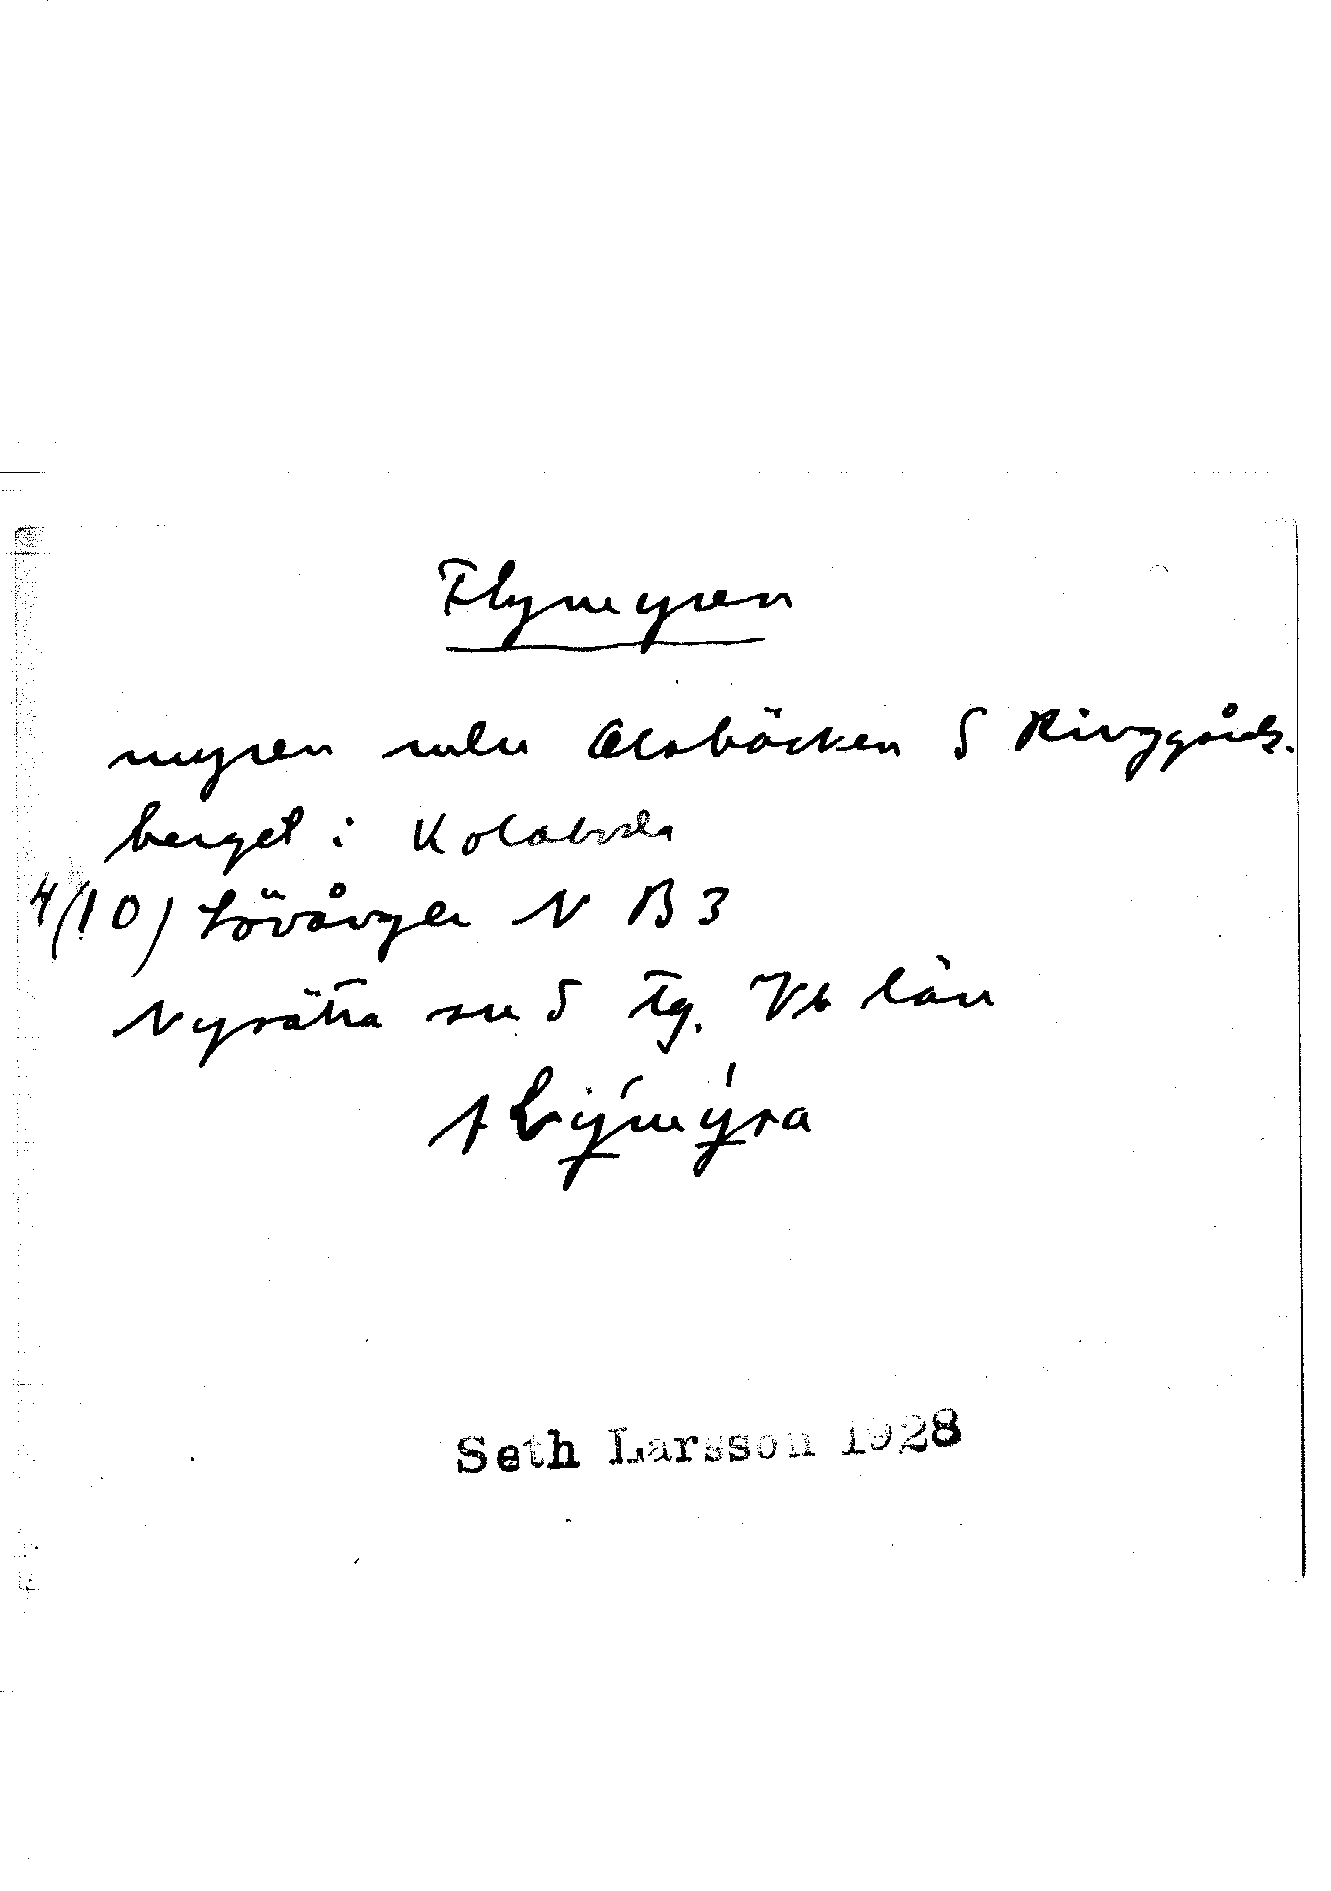 Flymyren
myren m Alsbäcken S Ringgårds-
berget i Kolaboda
4/10) Lövånger N B 3
Nysätra sn S Tg. Vb län
flýmýra
Seth Larsson 1928